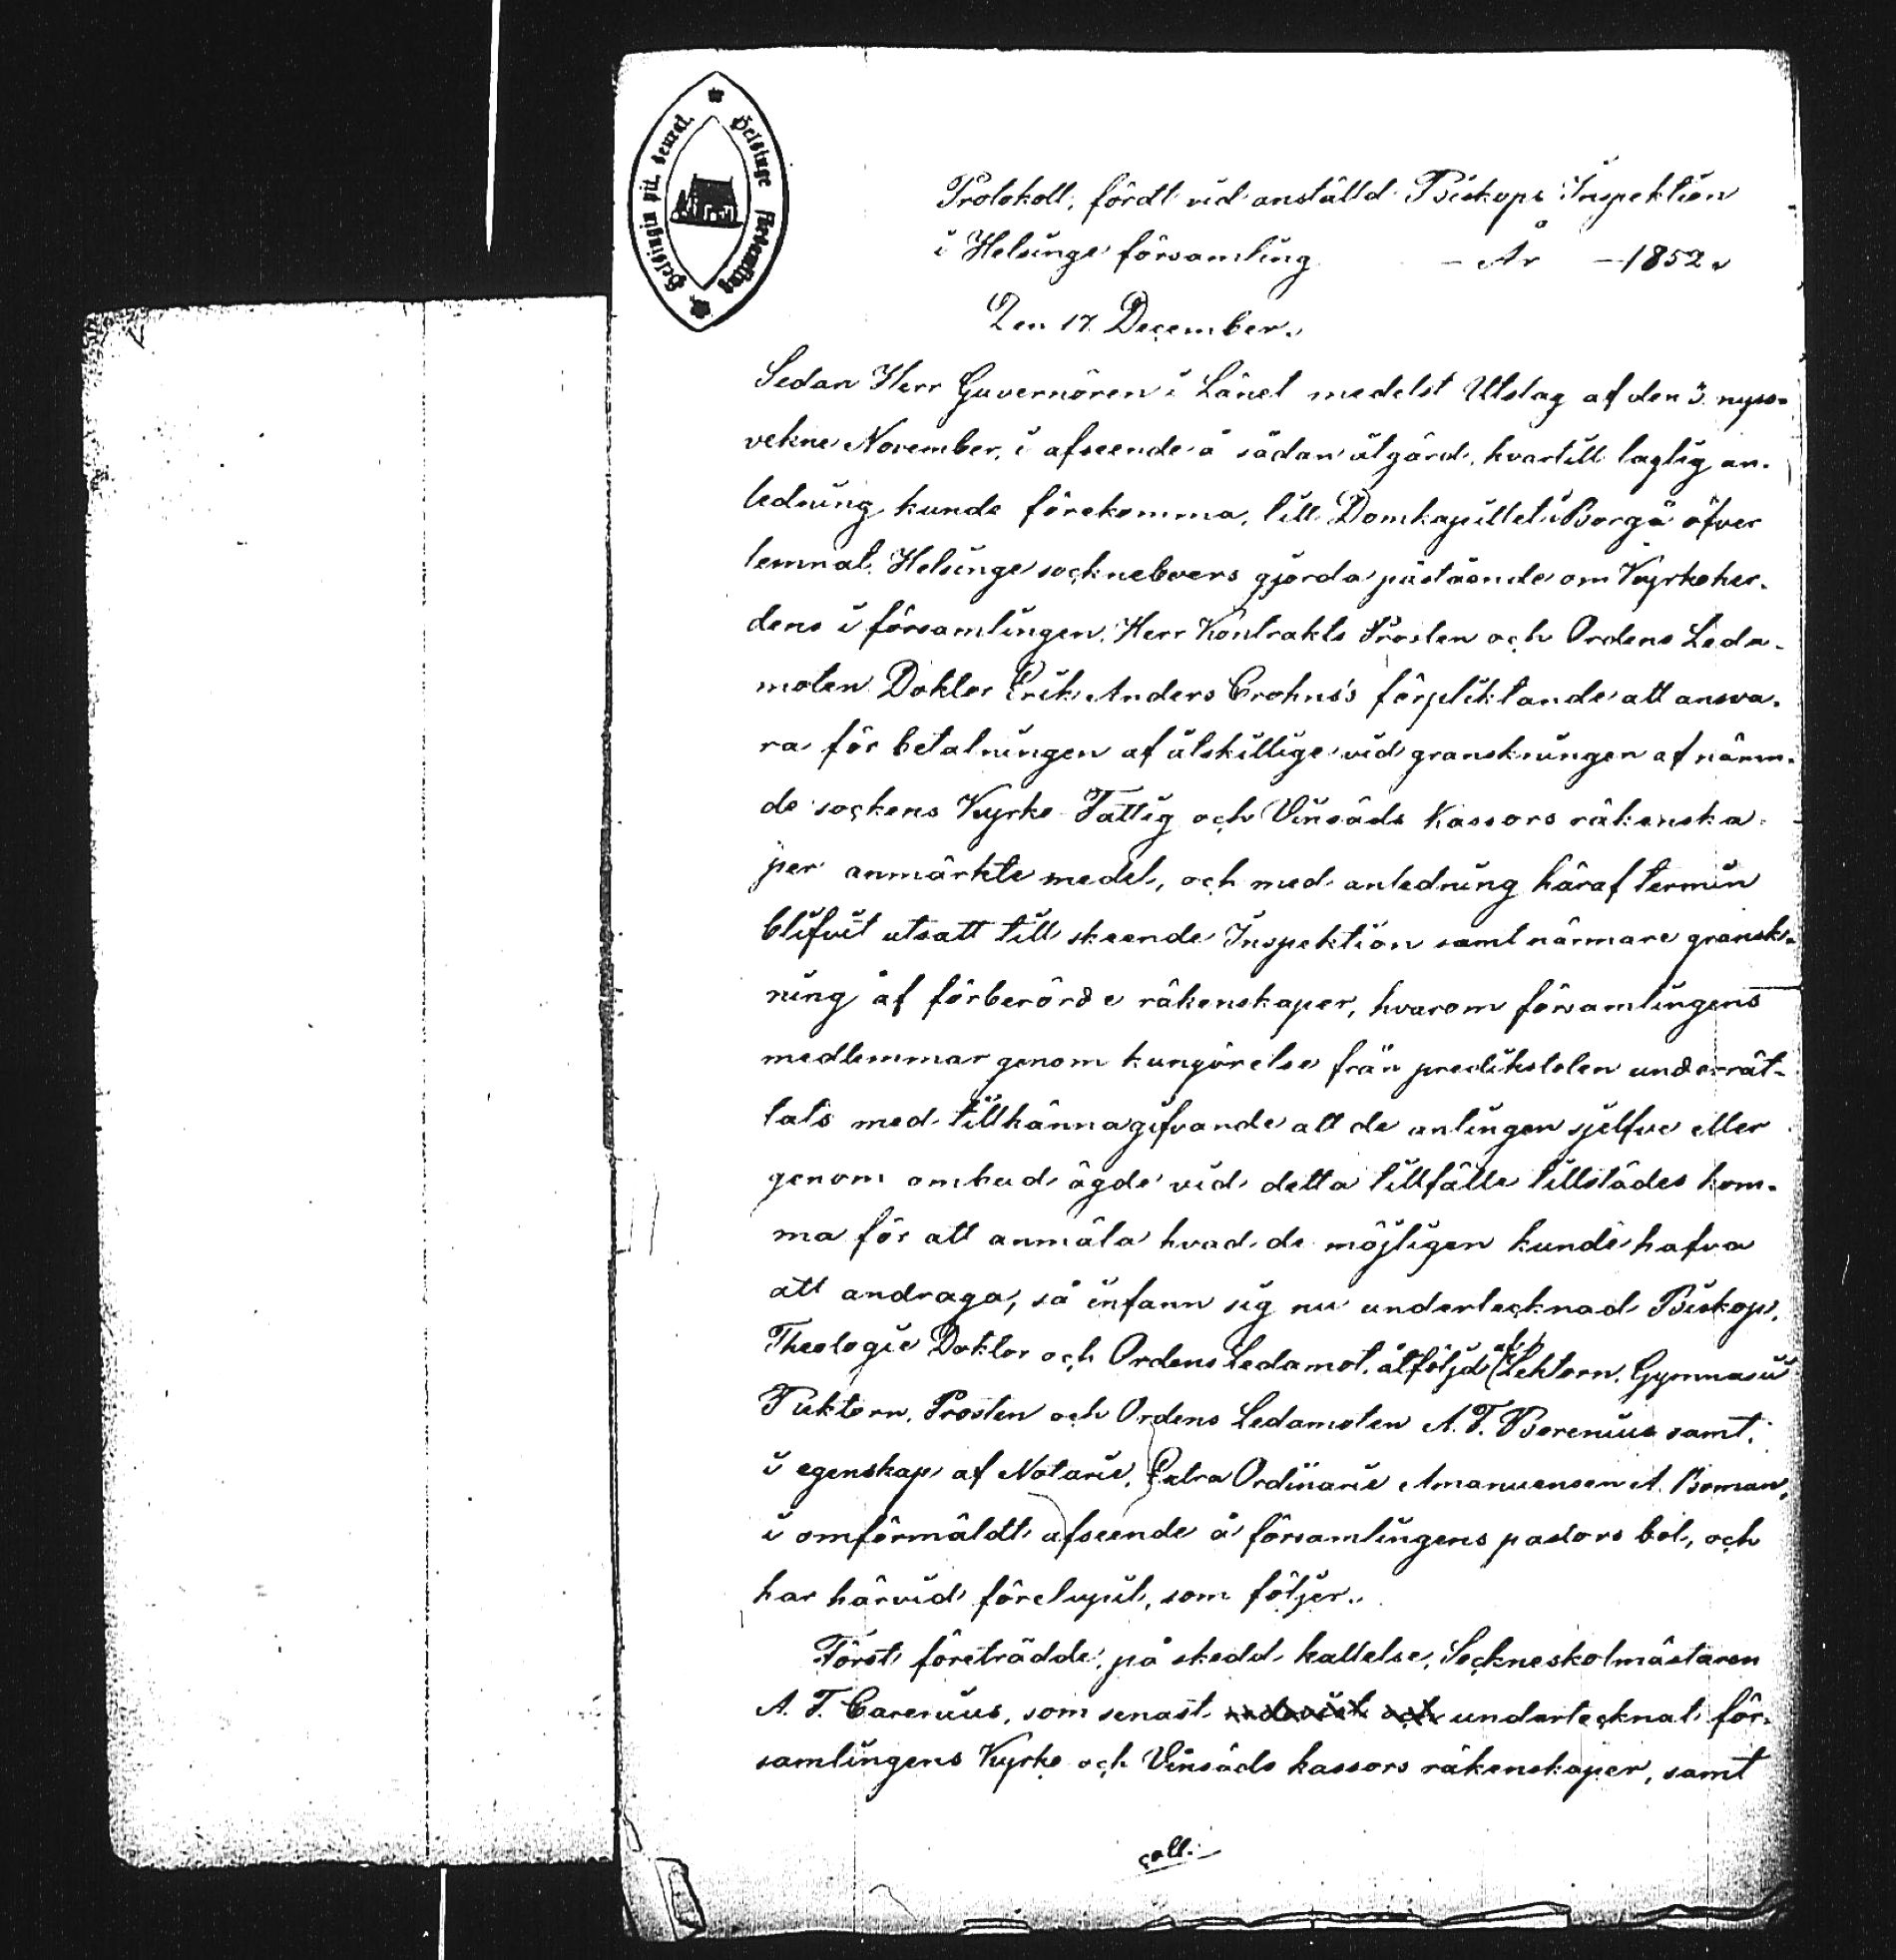 Helsinge församling
Helsingin pit. seurak.
Protokoll, fördt vid anställd Biskops Inspektion
i Helsinge församling - År - 1852.
Den 17 December.
Sedan Herr Guvernören i Länet medelst Utslag af den 3. nyss-
vekne November, i afseende å sådan åtgärd, hvartill laglig an-
ledning kunde förekomma, till Domkapitlet i Borgå öfver
lemnat Helsinge sockneboers gjorda påstående om Kyrkoher-
dens i församlingen, Herr Kontrakts Prosten och Ordens Leda-
moten Doktor Erik Anders Crohns's förpliktande att ansva-
ra för betalningen af åtskillige vid granskningen af nämn-
de sockens Kyrko- Fattig och Vinsäds Kassors räkenska-
per anmärkte medel, och med anledning häraf termin
blifvit utsatt till skeende Inspektion samt närmare gransk-
ning af förberörde räkenskaper, hvarom församlingens
medlemmar genom kungörelse från predikstolen underrät-
tats med tillkännagifvande att de antingen sjelfve eller
genom ombud ägde vid detta tillfälle tillstädes kom-
ma för att anmäla hvad de möjligen kunde hafva
att andraga, så infann sig nu undertecknad Biskop,
Theologie Doktor och Ordens Ledamot, åtföljd af Lektorn, Gymnasii
Rektorn, Prosten och Ordens Ledamoten A. F. Borenius samt,
i egenskap af Notarie, Extra Ordinarie Amanuensen A. Boman,
i omförmäldt afseende å församlingens pastors bol, och
har härvid förelupit, som följer.
Först företrädde, på skedd kallelse, Sockneskolmästaren
A. F. Carenius, som senast undertecknat för-
samlingens Kyrko och Vinsäds kassors räkenskaper, samt
coll.